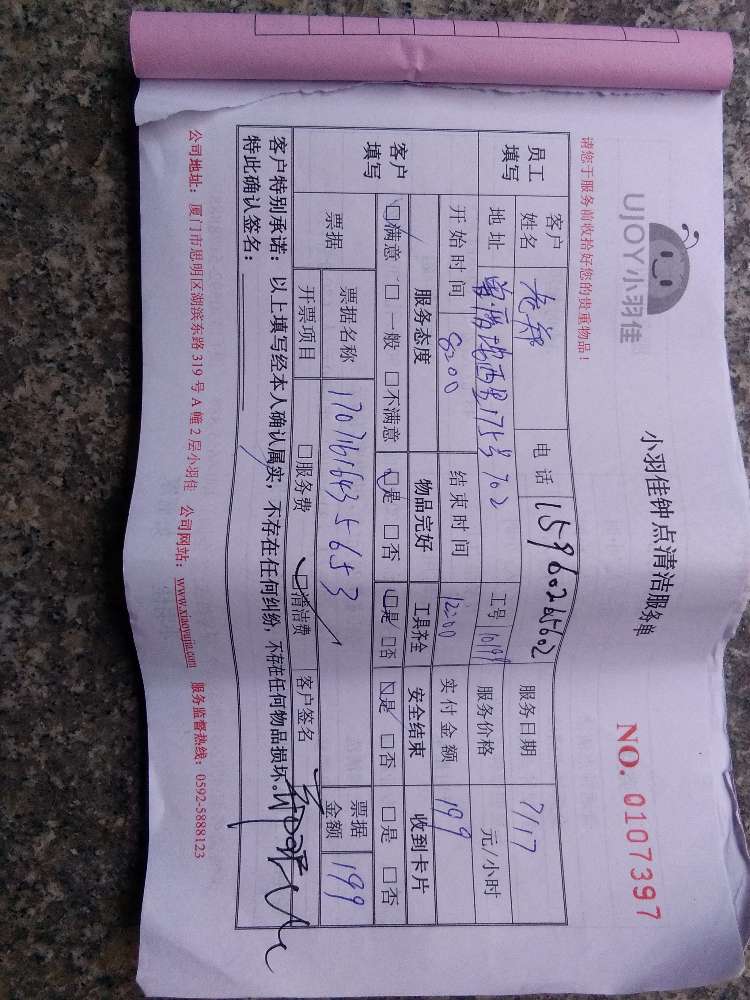 UJOY小羽佳
小羽佳钟点清洁服务单
NO. 0107397
请您于服务前收拾好您的贵重物品！
员工填写
客户姓名 老郑 电话 15960265602 服务日期 7/17
地址 西里175号702 工号 服务价格 元/小时
开始时间 8:00 结束时间 12:00 实付金额 199
客户填写
服务态度 物品完好 工具齐全 安全结束 收到卡片
□满意 □一般 □不满意 □是 □否 □是 □否 □是 □否 □是 □否
票据 票据名称 客户签名 票据金额 199
开票项目 □服务费 □清洁费
客户特别承诺：以上填写经本人确认属实，不存在任何纠纷，不存在任何物品损坏。
特此确认签名：
公司地址：厦门市思明区湖滨东路319号A幢2层小羽佳 公司网站：www.xiaoyujia.com 服务监督热线：0592-5888123